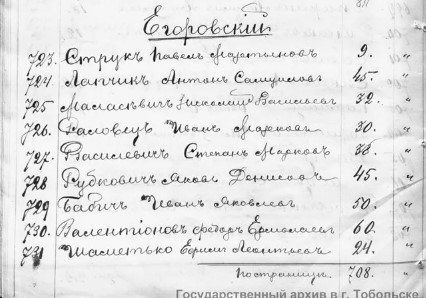 Егоровскій
723. Струкъ Павелъ Мартыновъ 9. "
724. Лапчикъ Антонъ Самуиловъ 45. "
725 Васильевъ 32. "
726. Иванъ Марковъ 30. "
727. Василевичъ Степанъ Марковъ "
728 Рубковичъ Яковъ Денисовъ 45. "
729 Бабичъ Иванъ Яковлевъ 50. "
730. Валентіоновъ Федоръ Ермолаевъ 60. "
731 Шаметько Ефимъ Леонтьевъ 24. "
708. "
Государственный архив в г. Тобольске